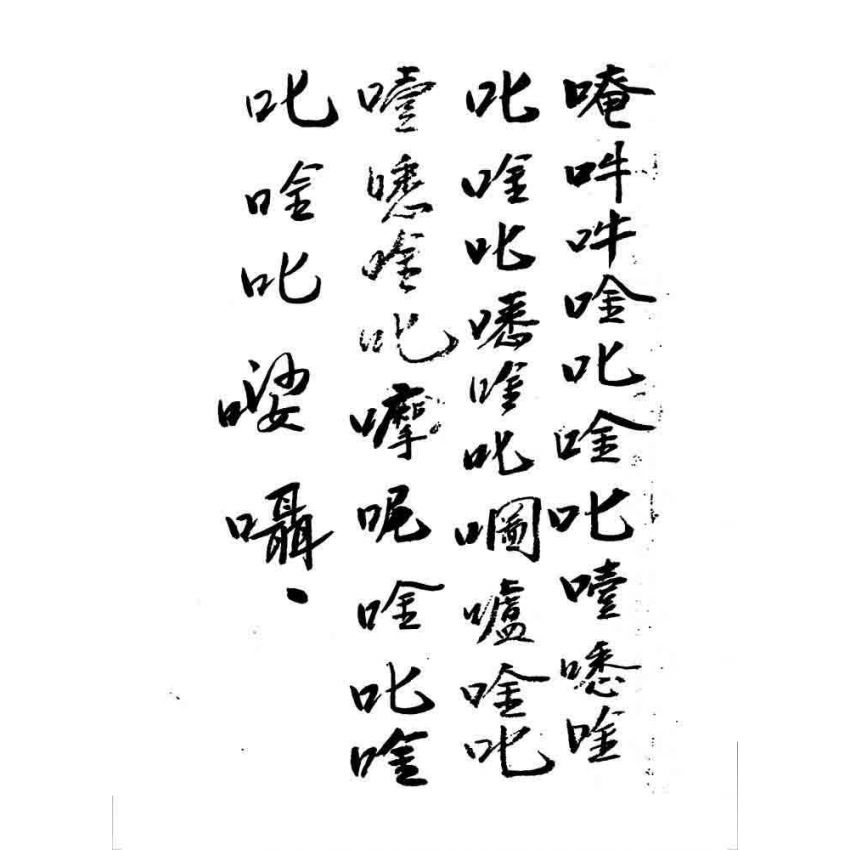 唵吽吽唫叱唫叱噎𡁱唫
叱唫叱𡁱唫叱㘎嚧唫叱
噎𡁱唫叱嚤呢唫叱唫
叱唫叱㗭囁、